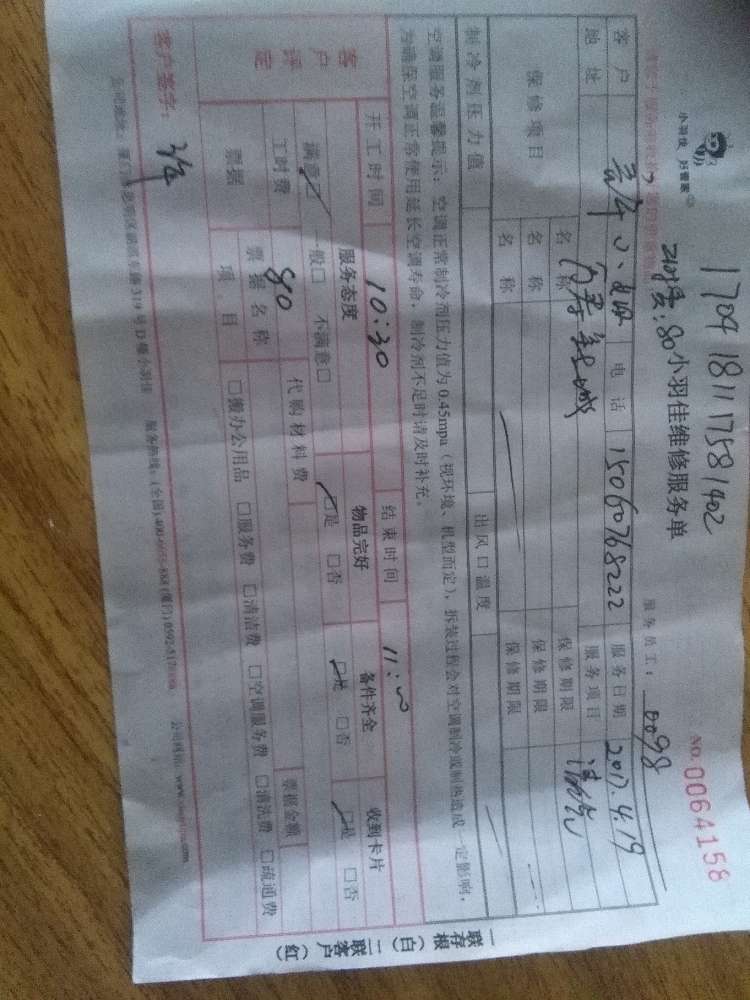 小羽佳 好管家
1704181117581402
工时费:80
小羽佳维修服务单
NO. 0064158
服务员工: 0098
客户 电话 15060768222 服务日期 2017.4.19
地址 服务项目
保修项目 名称 保修期限
名称 保修期限
名称 保修期限
制冷剂压力值 出风口温度
空调服务温馨提示:空调正常制冷剂压力值为0.45mpa(视环境、机型而定),拆装过程会对空调制冷或制热造成一定影响,
为确保空调正常使用延长空调寿命,制冷剂不足时请及时补充。
开工时间 10:30 结束时间 11:00
客户评定
服务态度 物品完好 备件齐全 收到卡片
满意□ 一般□ 不满意□ □是 □否 □是 □否 □是 □否
工时费 80 代购材料费
票据 票据名称 票据金额
项目 □搬办公用品 □服务费 □清洁费 □空调服务费 □清洗费 □疏通费
客户签字:
一联存根(白) 二联客户(红)